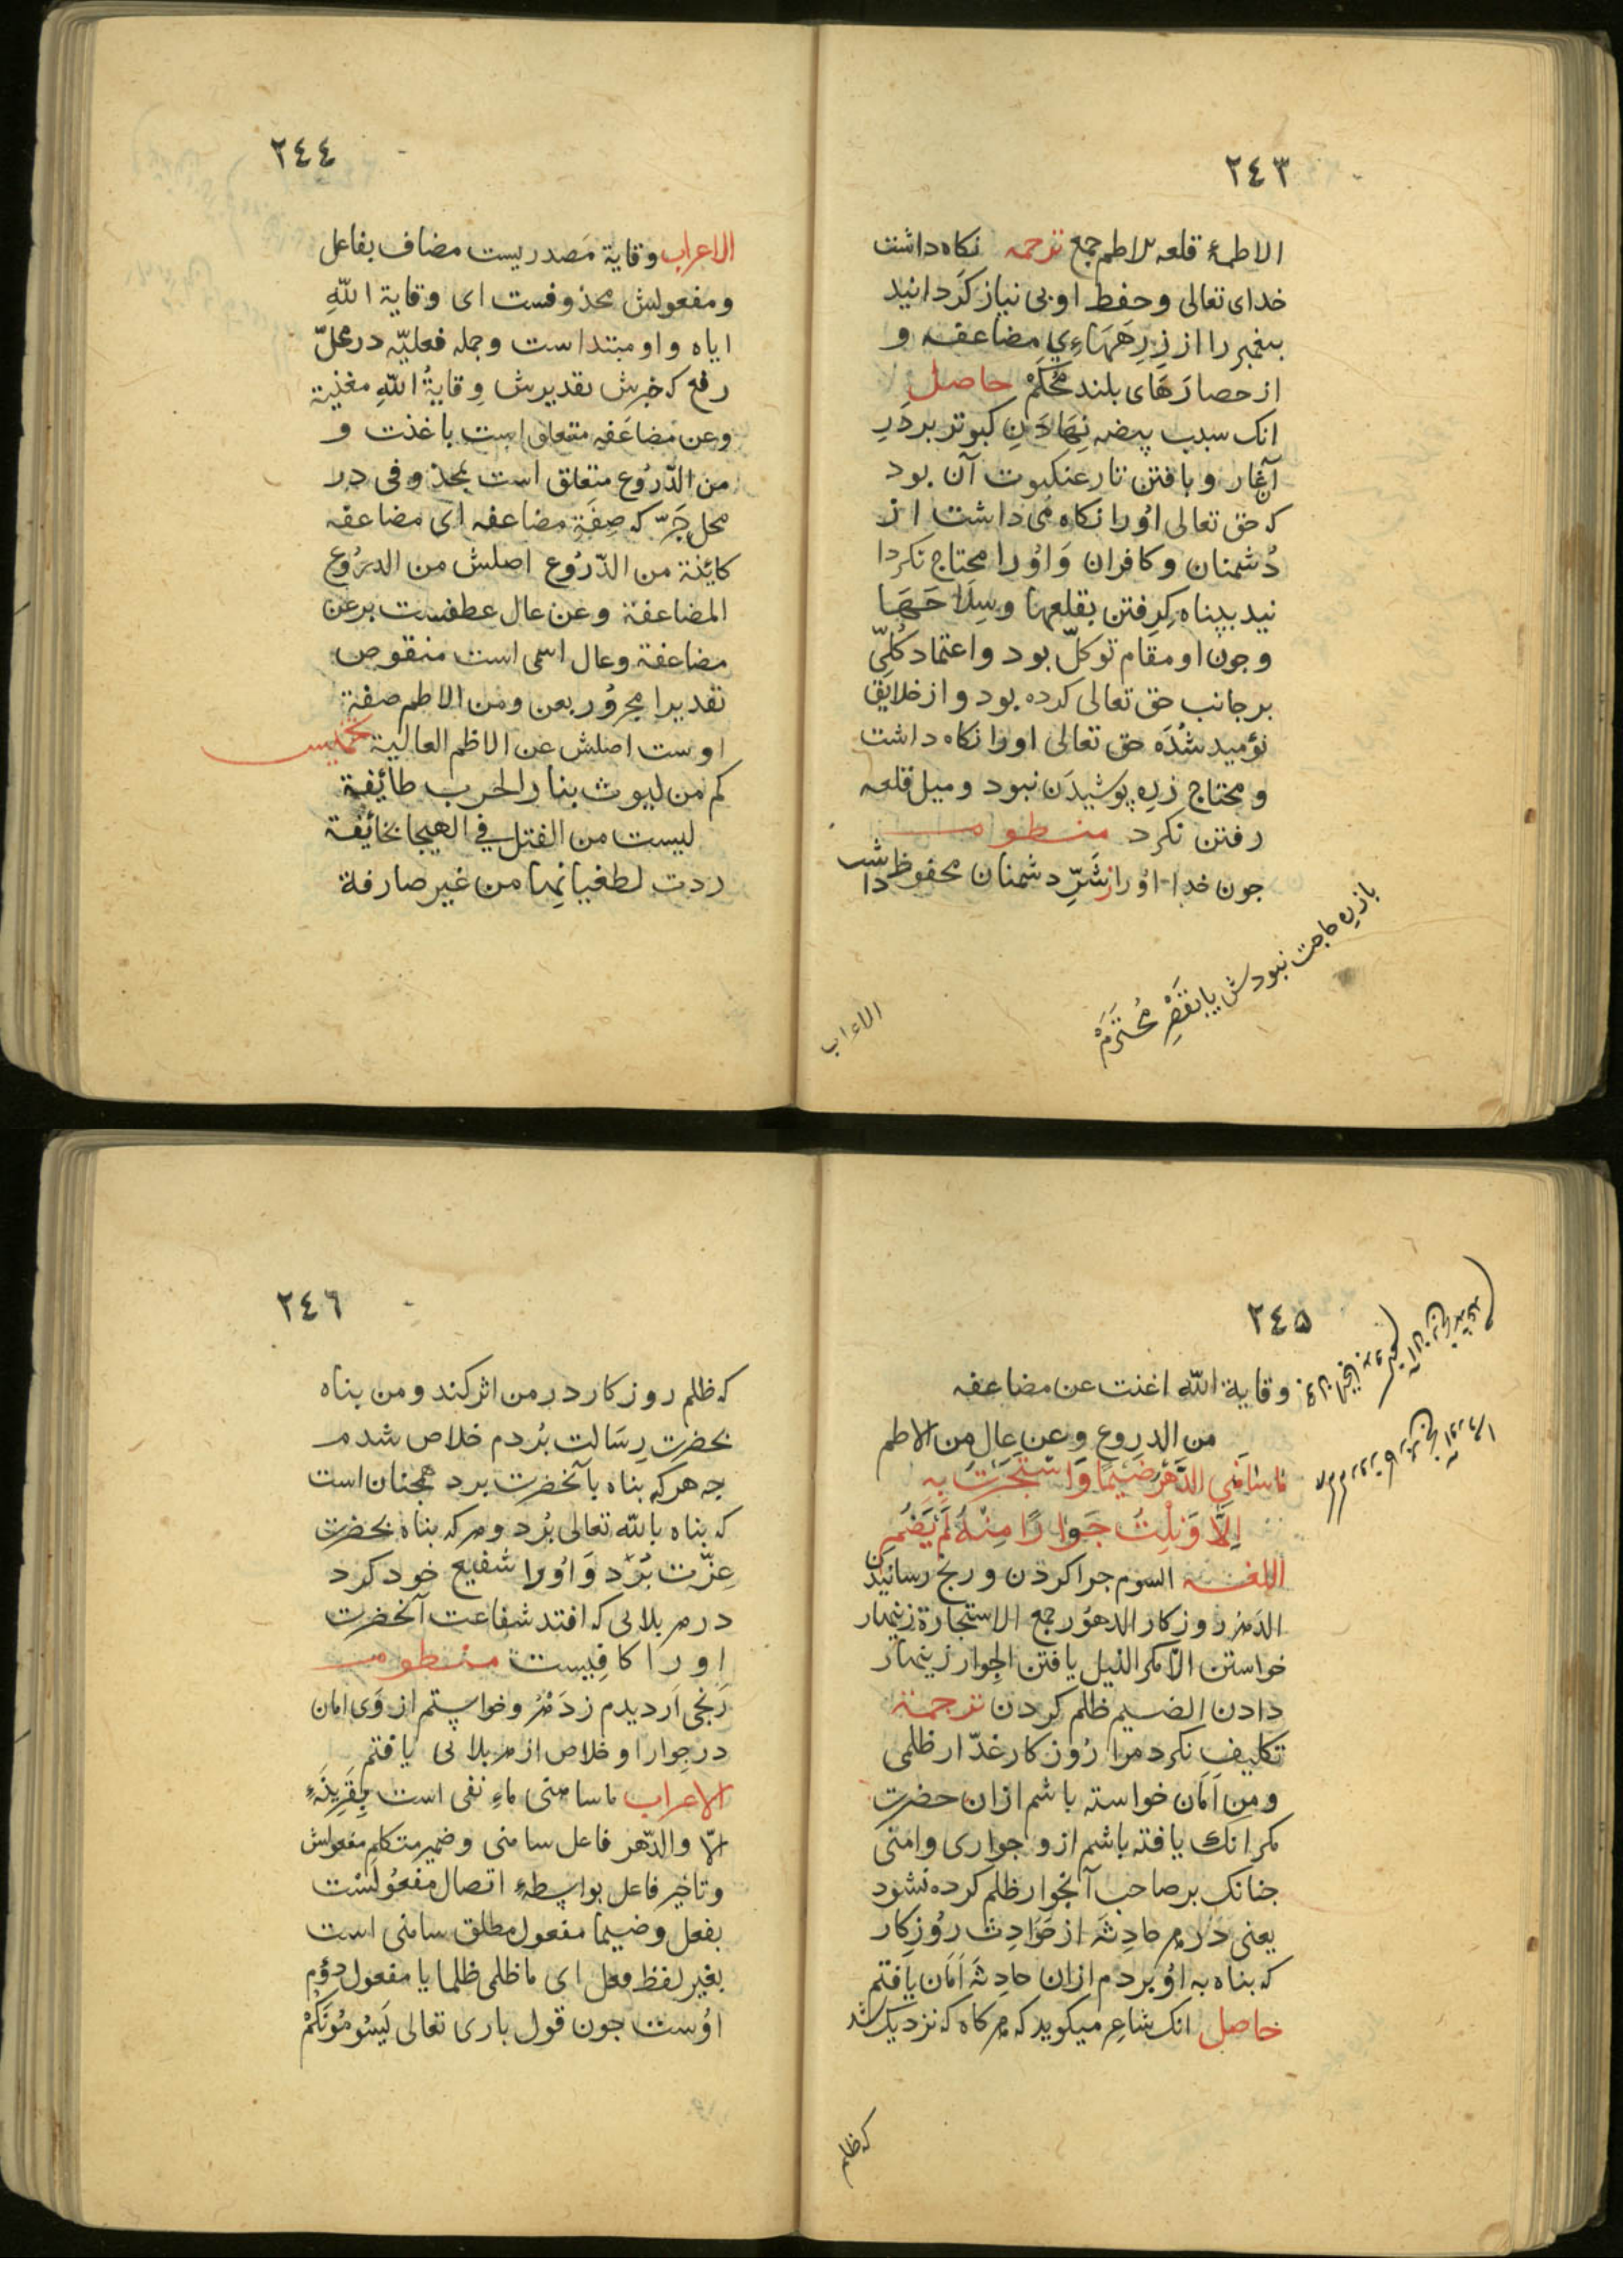 ٢٤٣
الاطمة قلعه الاطم جمع ترجمه نكاه داشت
خدای تعالی وحفظ او بی نیاز كردانید
پیغمبر را از زِرِهَهاءِیِ مضاعفه و
از حصارَهَای بلند مُحْكَمْ حاصل
انک سبب بیضه نِهَادَنِ كبوتر بر دَرِ
آغار و بافتن تار عنكبوت آن بود
كه حق تعالی اوُرا نكاه می داشت از
دُشمنان و كافران وَاوُرا محتاج نكردا
نید بپناه كِرِفتن بقلعها و سِلَاحَهَا
وجون او مقام توكّل بود واعتماد كُلیّ
بر جانب حق تعالی كرده بود و از خلایق
نؤمید شُدَه حق تعالی اورا نكاه داشت
ومحتاج زِرِه پوشیدَن نبود و میل قلعه
رفتن نكرد منظومه
جون خدا اوُرا از شَرِّ دشمنان محفوظ داشت
با زره حاجت نبودش یا بقَصْرِ مُحْتَرَمْ
الاعراب
٢٤٤
الاعراب وقایة مَصدریست مضاف بفاعل
ومفعولش محذوفست ای وقایة اللّهِ
ایاه واو مبتداست وجمله فعلیّه در محلّ
رفع كه خبرش تقدیرش وِقایةُ اللّهِ مغنیة
وعن مضاعَفه متعلق است باغنت و
من الدّرُوع متعلق است بمحذوفی در
محل جَرّ كه صِفَةِ مضاعفه ای مضاعفه
كائنة من الدّرُوع اصلش من الدرُوع
المضاعفة وعن عال عطفست بر عن
مضاعفة وعال اسمی است منقوص
تقدیرا مجرُور بعن ومن الاطم صفة
اوست اصلش عن الاطم العالیة تخمیس
كم من لیوث بنار الحرب طائفة
لیست من القتل فی الهیجا بخائفة
ردت لطغیانِها من غیر صارفة
٢٤٥
وقایة اللّه اغنت عن مضاعفه
من الدروع وعن عَالٍ مِن الاطم
مَا سَامَنِی الدَّهْرُ ضَیْمًا وَاسْتَجَرْتُ بِهِ
اِلَّا وَنِلْتُ جَوَارًا مِنْهُ لَمْ یُضَمِ
اللغة السوم جرا كردن و رنج رسانیدن
الدَهر روزكار الدهوُر جمع الاستجارة زینهار
خواستن الّا مكر النیل یافتن الجِوار زینهار
دادن الضیم ظلم كردن ترجمة
تكلیف نكرد مرا رُوزكار غدّار ظلمی
ومِن اَمَان خواسته باشم ازان حضرت
مكر انک یافته باشم از و جواری وامنی
جنانک بر صاحب آنجوار ظلم كرده نشود
یعنی دَر هر حادِثَه از حَوَادِث رُوزِكار
كه بناه به اوُ بردم ازان حادِثَه اَمَان یافتم
حاصل انک شاعِر میكوید كه هر كاه كه نزدیک شد
كه ظلم
٢٤٦
كه ظلم روزكار در من اثر كند ومن بناه
بحضرت رِسَالت بُردم خلاص شدم
جه هر كه بناه بآنحضرت برد همجنان است
كه بناه باللّه تعالی بُرد وهر كه بناه بحضرت
عِزّت بُرَد وَاوُرا شفیع خود كرد
در هر بلایی كه افتد شفاعت آنحضرت
اورا كافِیست منظومه
رَنجی اَر دیدم زدَهر وخواستم از وَی امان
در جِوار او خلاص از هر بلائی یافتم
الاعراب ما سامنی ماءِ نفی است بِقَرِینَۀِ
الّا والدّهر فاعل سامنی وضمیر متكلم مفعولش
وتاخیر فاعل بواسِطۀ اتصال مفعُولَست
بفعل وضیما مفعول مطلق سامنی است
بغیر لفظ فعل ای ما ظلمی ظلما یا مفعول دوُم
اوُست جون قول باری تعالی یَسُومُونَكُمْ